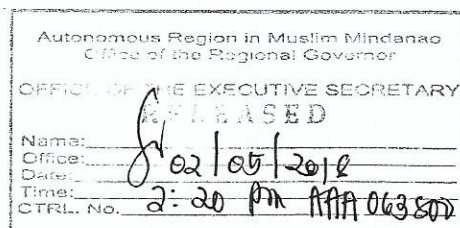 Autonomous Region in Muslim Mindanao
Office of the Regional Governor
OFFICE OF THE EXECUTIVE SECRETARY
RELEASED
Name:
Office:
Date: 02/05/2018
Time: 2:20 pm
CTRL. No. AAA 063800